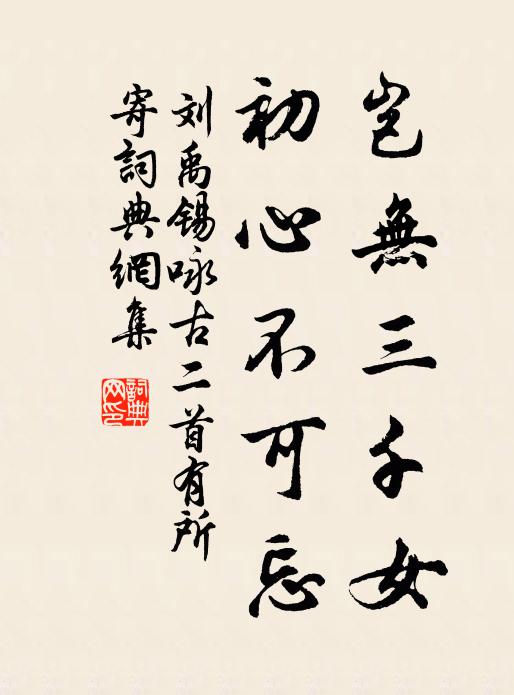 豈無三千女
初心不可忘
刘禹锡咏古二首有所
寄詞典網集
詞典网印